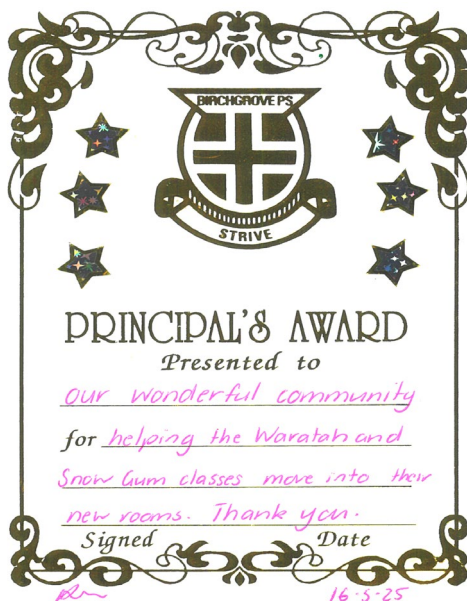 BIRCHGROVE PS
STRIVE
PRINCIPAL'S AWARD
Presented to
our wonderful community
for helping the Waratah and
Snow Gum classes move into their
new rooms. Thank you.
Signed Date
16-5-25